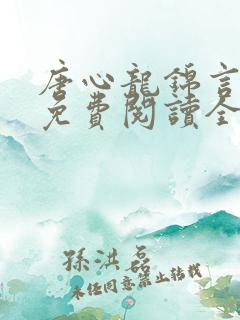 唐心龍錦言
免費閱讀全
孫洪磊
未經同意禁止轉載